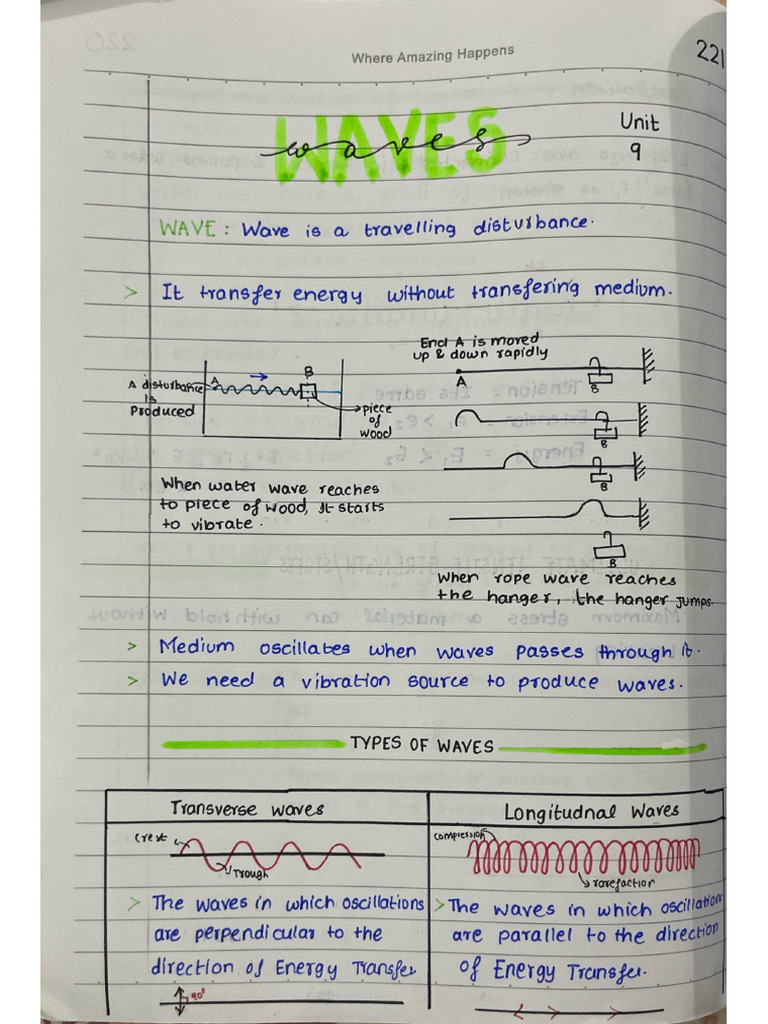 Where Amazing Happens
221
WAVES
waves
Unit
9
WAVE : Wave is a travelling disturbance.
> It transfer energy without transfering medium.
A disturbance
is
Produced
A
B
piece
of
wood
When water wave reaches
to piece of wood, it starts
to vibrate.
End A is moved
up & down rapidly
A
B
B
B
B
When rope wave reaches
the hanger, the hanger jumps.
> Medium oscillates when waves passes through it.
> We need a vibration source to produce waves.
TYPES OF WAVES
Transverse waves
Crest
Trough
> The waves in which oscillations
are perpendicular to the
direction of Energy Transfer
90°
Longitudnal Waves
compression
rarefaction
> The waves in which oscillation
are parallel to the direction
of Energy Transfer.